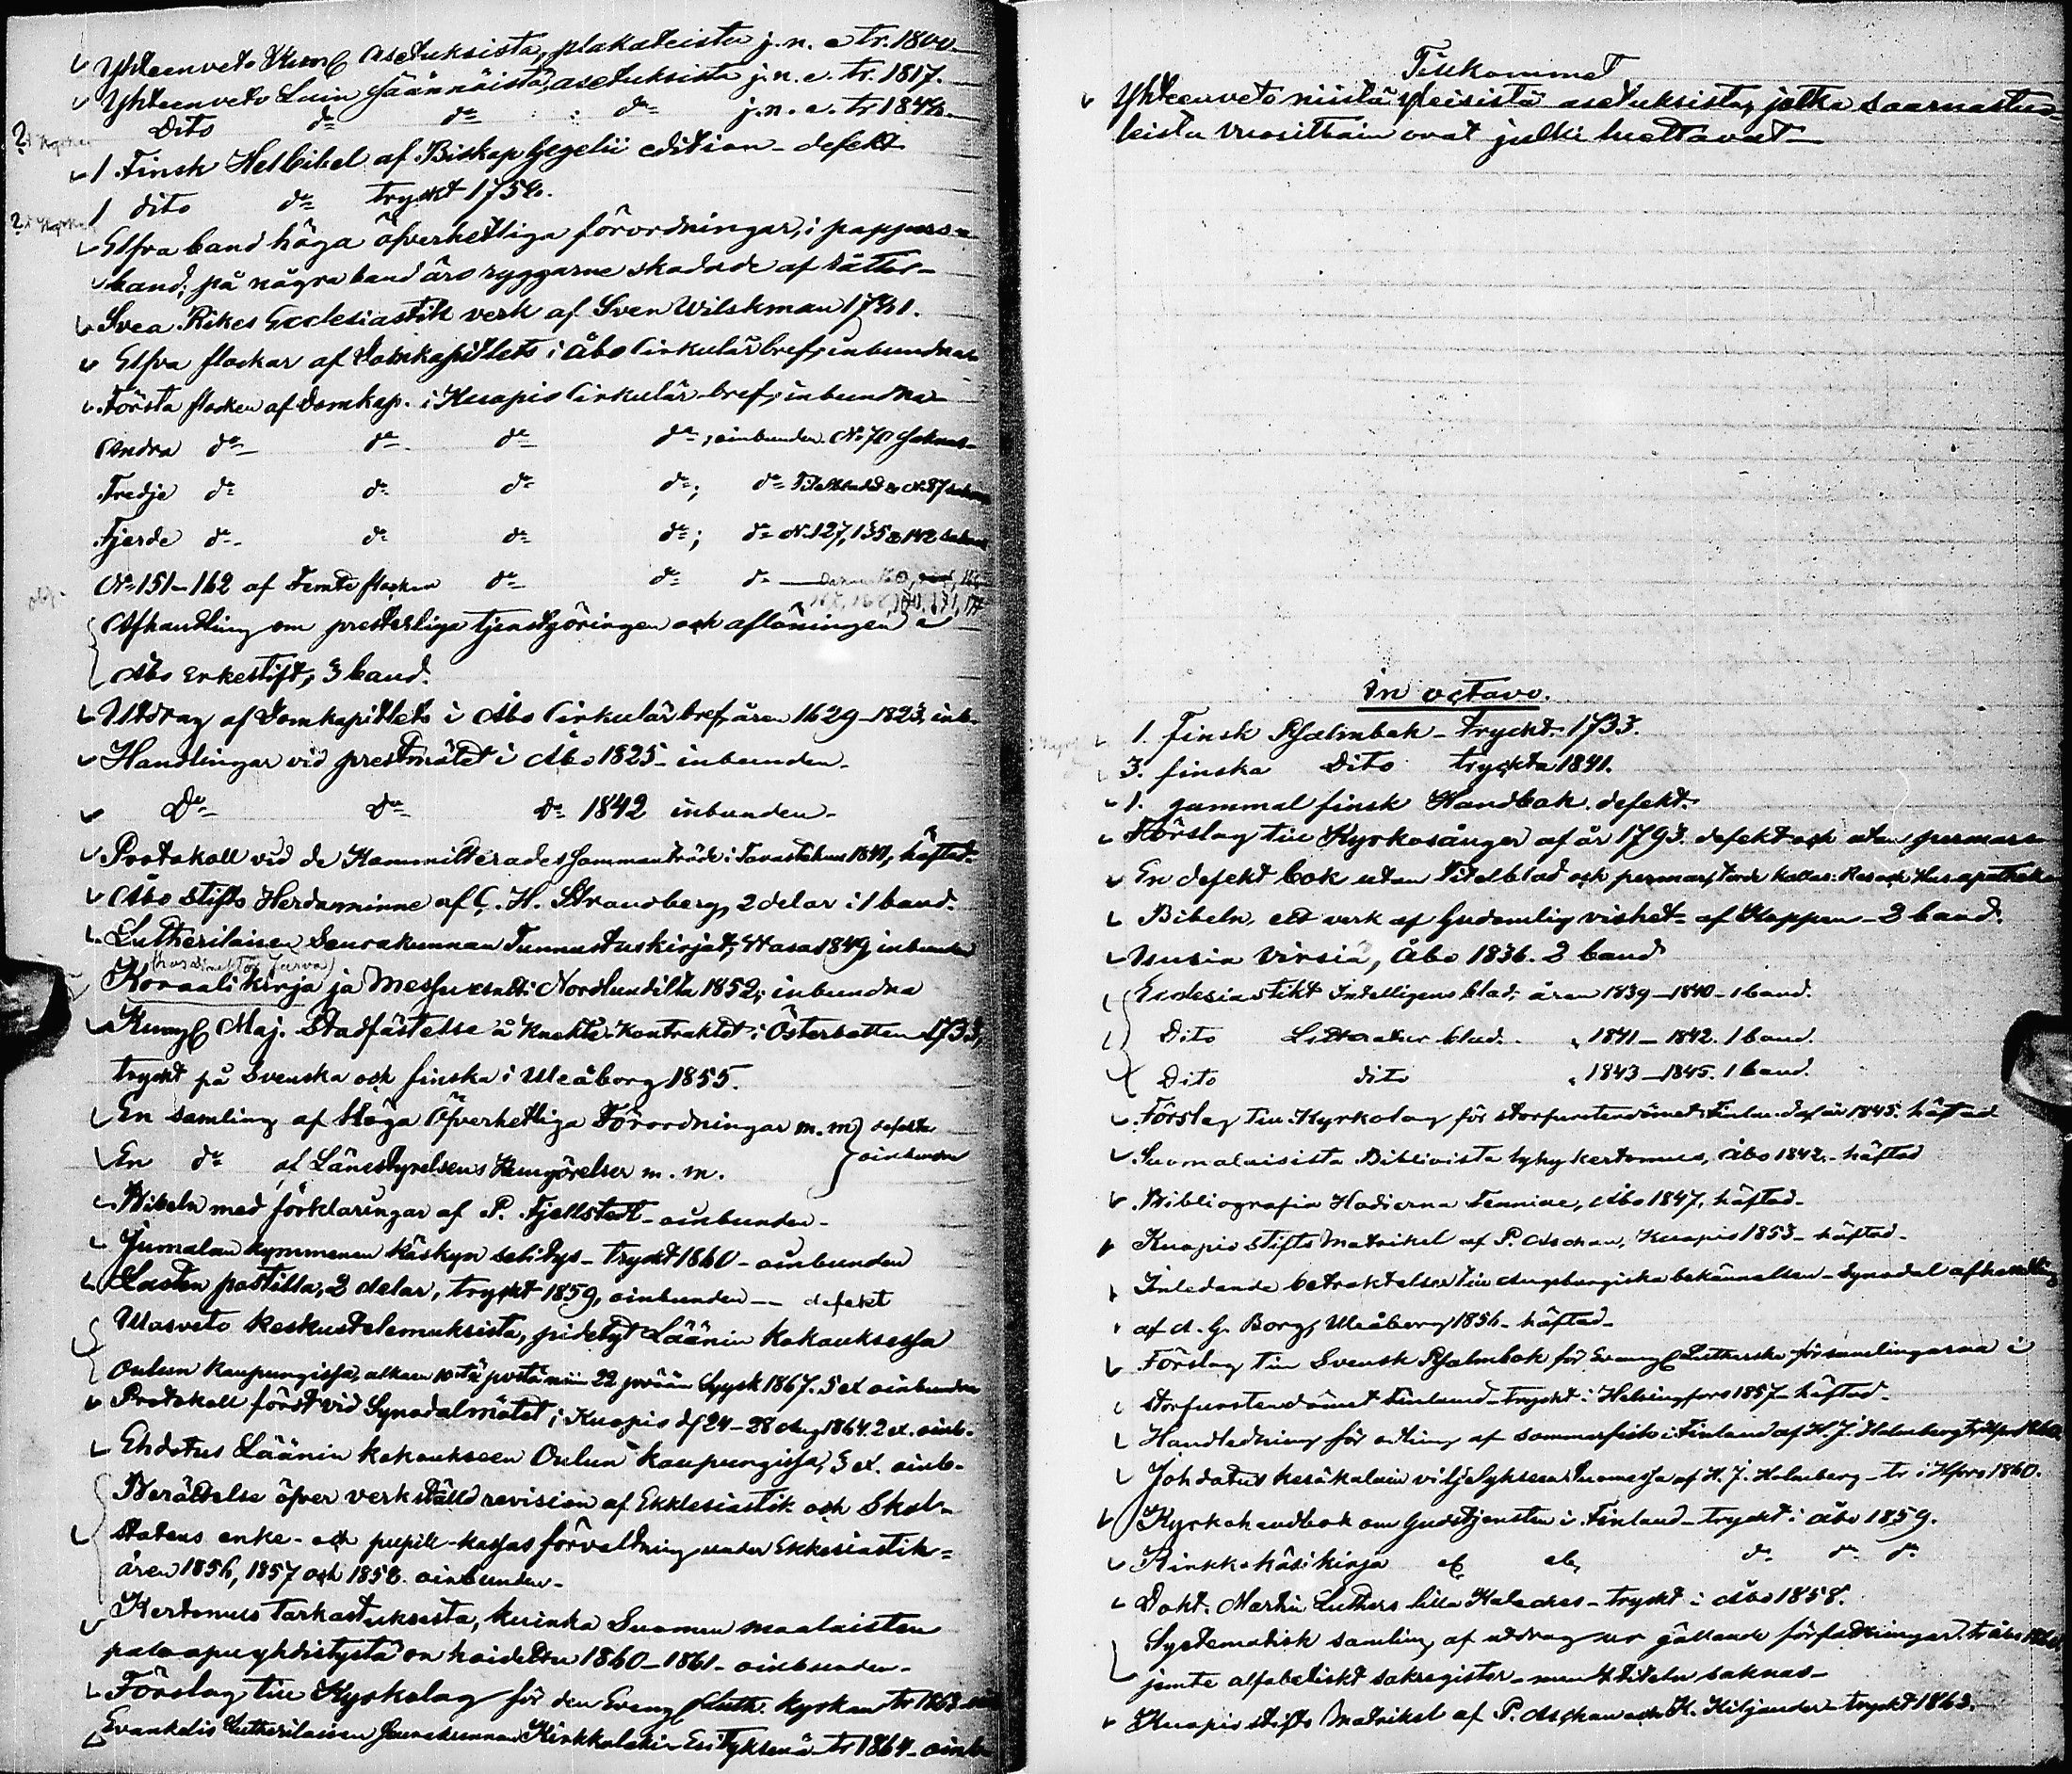 Yhteenveto Kung. Asetuksista, plakateista j.n.e tr. 1800
Yhteenveto Lain säännöistä, asetuksista j.n.e. tr. 1817.
Dito do do do j.n.e. tr 184
1 Finsk Helbibel af Biskop Gezelii edition - defekt
1 dito do tryckt 175
Elfva band höga öfverhetliga förordningar, i pappers-
band; på några band äro ryggarne skadade af råttor-
Svea Rikes Ecclesiastik verk af Sven Wilskman 1781.
Elfva flockar af Domkapitlets i Åbo Cirkulärbref, inbundna
Första flocken af Domkap. i Kuopio Cirkulär bref, inbundna
Andra do do do do; oinbunden. No 70 saknas
Tredje do do do do; do Titelbladet & No 87 saknas
Fjerde do do do do; do No 127, 135 & 142 saknas
No 151-162 af Femte flocken do do do
Afhandling om presterliga tjenstgöringen och aflöningen i
Åbo Erkestift, 3 band.
Utdrag af Domkapitlets i Åbo Cirkulärbref, åren 1629-1823, inb.
Handlingar vid prestmötet i Åbo 1825 - inbunden.
Do do do 1842 inbunden.
Protokoll vid de Kommitterades sammanträde i Tavastehus 18, häftad.
Åbo Stifts Herdaminne af C. H. Strandberg, 2 delar i 1 band.
Lutherilaisen Seurakunnan Tunnustuskirjat, Wasa 1849, inbunden
Koraalikirja ja Messu Nordlundilta 1852; inbundna
Kungl Maj. Stadfästelse å Knekte-Kontraktet i Österbotten 1733,
tryckt på Svenska och finska i Uleåborg 1855.
En samling af Höga Öfverhetliga Förordningar m. m. defekta
En do af Länestyrelsens Kungörelser m. m. oinbunden
Bibeln med förklaringar af P. Fjellstedt - oinbunden.
Jumalan kymmenen käskyn selitys - tryckt 1860 - oinbunden
Lasten postilla, 2 delar, tryckt 1859, oinbunden - defekt
Ulosveto keskustelemuksista, pidetyt Läänin kokouksessa
Oulun kaupungissa, alkaen 10tä päivä niin 22 päivään Syysk 1867. 5 ex oinbunden
Protokoll fördt vid Synodalmötet i Kuopio d. 24-28 Aug 1864. 2 ex. oinb.
Ehdotus Läänin kokoukseen Oulun kaupungissa, 3 ex. oinb.
Berättelse öfver verkställd revision af Ekklesiastik och Skol-
statens enke- och pupill-kassas förvaltning under Ekklesiastik-
åren 1856, 1857 och 1858. oinbunden.
Kertomus Tarkastuksesta, kuinka Suomen maalaisten
paloapu yhdistystä on hoidettu 1860-1861 - oinbunden.
Förslag till Kyrkolag för den Evangl. Luth. kyrkan tr 1863
Evankelis Lutherilaisen Seurakunnan Kirkkolaki Esityksenä tr 1864 - oinb
Tillkommet
Yhteenveto niistä yleisistä asetuksista, jotka saarnastuo-
leista vuosittain ovat julki luettavat -
in octavo.
1. Finsk Psalmbok - tryckt 1733.
3. finska Dito tryckta 1841.
1. gammal finsk Handbok. defekt.
Förslag till Kyrkosånger af år 1793. defekt och utan permar
En defekt bok utan Titelblad och permar, torde kallas: Res och Husapothek
Bibeln, ett verk af Gudomlig vishet - af Hoppen - 2 band.
Uusia Virsiä, Åbo 1836. 2 band
Ecclesiastikt Intelligens blad, åren 1839-1840 - 1 band.
Dito Litteratur blad. " 1841-1842. 1 band.
Dito dito " 1843-1845. 1 band.
Förslag till Kyrkolag för storfurstendömet Finland af år 1845. häftad
Suomalaisista Biblioista lyhykertomus, Åbo 1842. - häftad
Bibliografia Hodierna Fennica, Åbo 1847, häftad.
Kuopio stifts Matrikel af P. Aschan, Kuopio 1853 - häftad.
Inledande betraktelser till Augsburgiska bekännelsen - Synodal afhandling
af A. G. Borg, Uleåborg 1856 - häftad.
Förslag till Svensk Psalmbok för Evangl. Lutherska församlingarna i
storfurstendömet Finland - tryckt i Helsingfors 1857 - häftad.
Handledning för odling af sommarfisk i Finland af H. J. Holmberg
Johdatus kesäkalain viljelykseen Suomessa af H. J. Holmberg - tr i Hfors 1860.
Kyrkohandbok om Gudstjensten i Finland - tryckt i Åbo 1859.
Kirkko käsikirja do do do
Dokt. Martin Luthers lilla Kateches - tryckt i Åbo 1858.
Systematisk samling af utdrag ur gällande författningar. tr Åbo
jemte alfabetiskt sakregister - men titeln saknas -
Kuopio stifts Matrikel af P. Aschan och K. Kiljander - tryckt 1863.